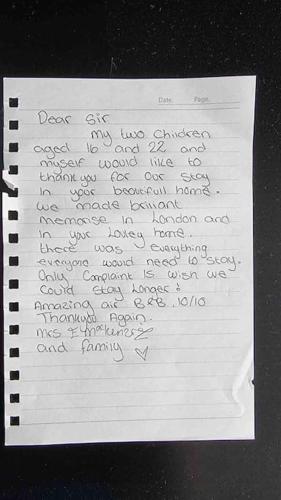 Date: Page:
Dear Sir
My two Children
aged 16 and 22 and
myself would like to
thank you for our stay
In your beautifull home.
we made brilliant
Memorise in London and
in your Lovley home.
there was everything
everyone would need to stay.
Only Complaint Is wish we
Could stay Longer :
Amazing air B&B. 10/10
Thankyou Again.
Mrs
and family ♡